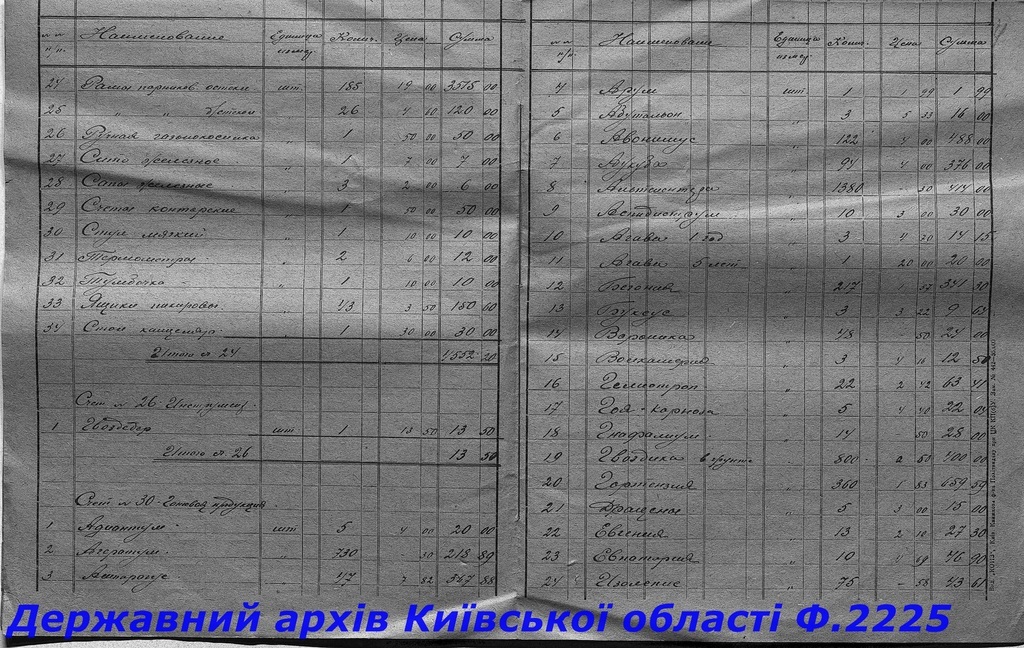 №№ п/п. Наименование Единица измер. Колич. Цена Сумма
24 Рамы парников. остекл. шт. 185 19 00 3515 00
25 " " б/стекол " 26 4 60 120 00
26 Ручная газонокосилка " 1 50 00 50 00
27 Сито железное " 1 7 00 7 00
28 Сапы железные " 3 2 00 6 00
29 Счеты конторские " 1 50 00 50 00
30 Стул мягкий " 1 10 00 10 00
31 Термометры " 2 6 00 12 00
32 Тумбочка " 1 10 00 10 00
33 Ящики пикировы " 43 3 50 150 60
34 Стол канцеляр. " 1 30 00 30 00
Итого сч. 24 20
Счет № 26 - Инструмент
1 Гвоздодер шт. 1 13 50 13 50
Итого сч. 26 13 50
Счет № 30 - Готовая продукция
1 Адиантум шт. 5 4 00 20 00
2 Агератум " 730 - 30 218 89
3 " 47 7 82 367 88
№№ п/п. Наименование Единица измер. Колич. Цена Сумма
4 Арум шт. 1 1 99 1 99
5 Абутилон " 3 5 33 16 00
6 Авонимус " 122 4 00 488 00
7 Аукуба " 94 4 00 376 00
8 " 1380 - 30 414 00
9 " 10 3 00 30 00
10 Агава 1 год " 3 4 70 14 15
11 Агава 5 лет " 1 20 00 20 00
12 Бегония " 217 1 57 341 30
13 Буксус " 3 3 22 9 65
14 Вероника " 48 50 24 00
15 " 3 4 16 12 50
16 Гелиотроп " 22 2 42 63 41
17 " 5 4 40 22 04
18 Гнафалиум " 14 50 28 00
19 Гвоздика в грунте 800 50 400 00
20 Гортензия " 360 1 83 659 59
21 Драцены " 5 3 00 15 00
22 Евгения " 13 2 10 27 30
23 " 10 4 69 46 90
24 Изолепис " 75 - 58 43 61
Державний архів Київської області Ф.2225